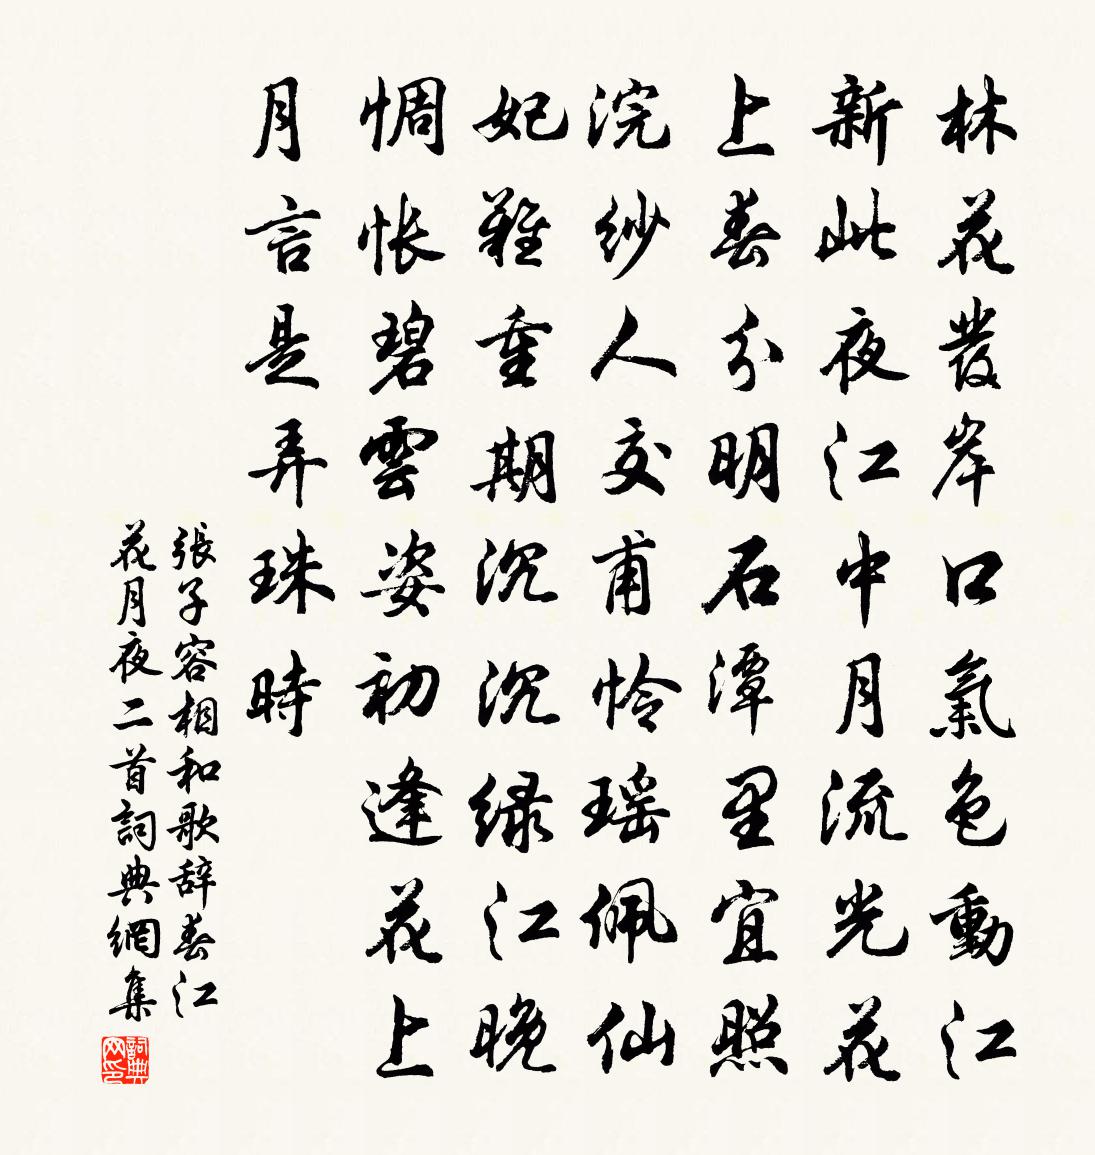 林花發岸口氣色動江
新此夜江中月流光花
上春分明石潭里宜照
浣紗人交甫怜瑶佩仙
妃難重期沉沉緑江晚
惆怅碧雲姿初逢花上
月言是弄珠時
張子容相和歌辞春江
花月夜二首詞典網集
詞典
网印